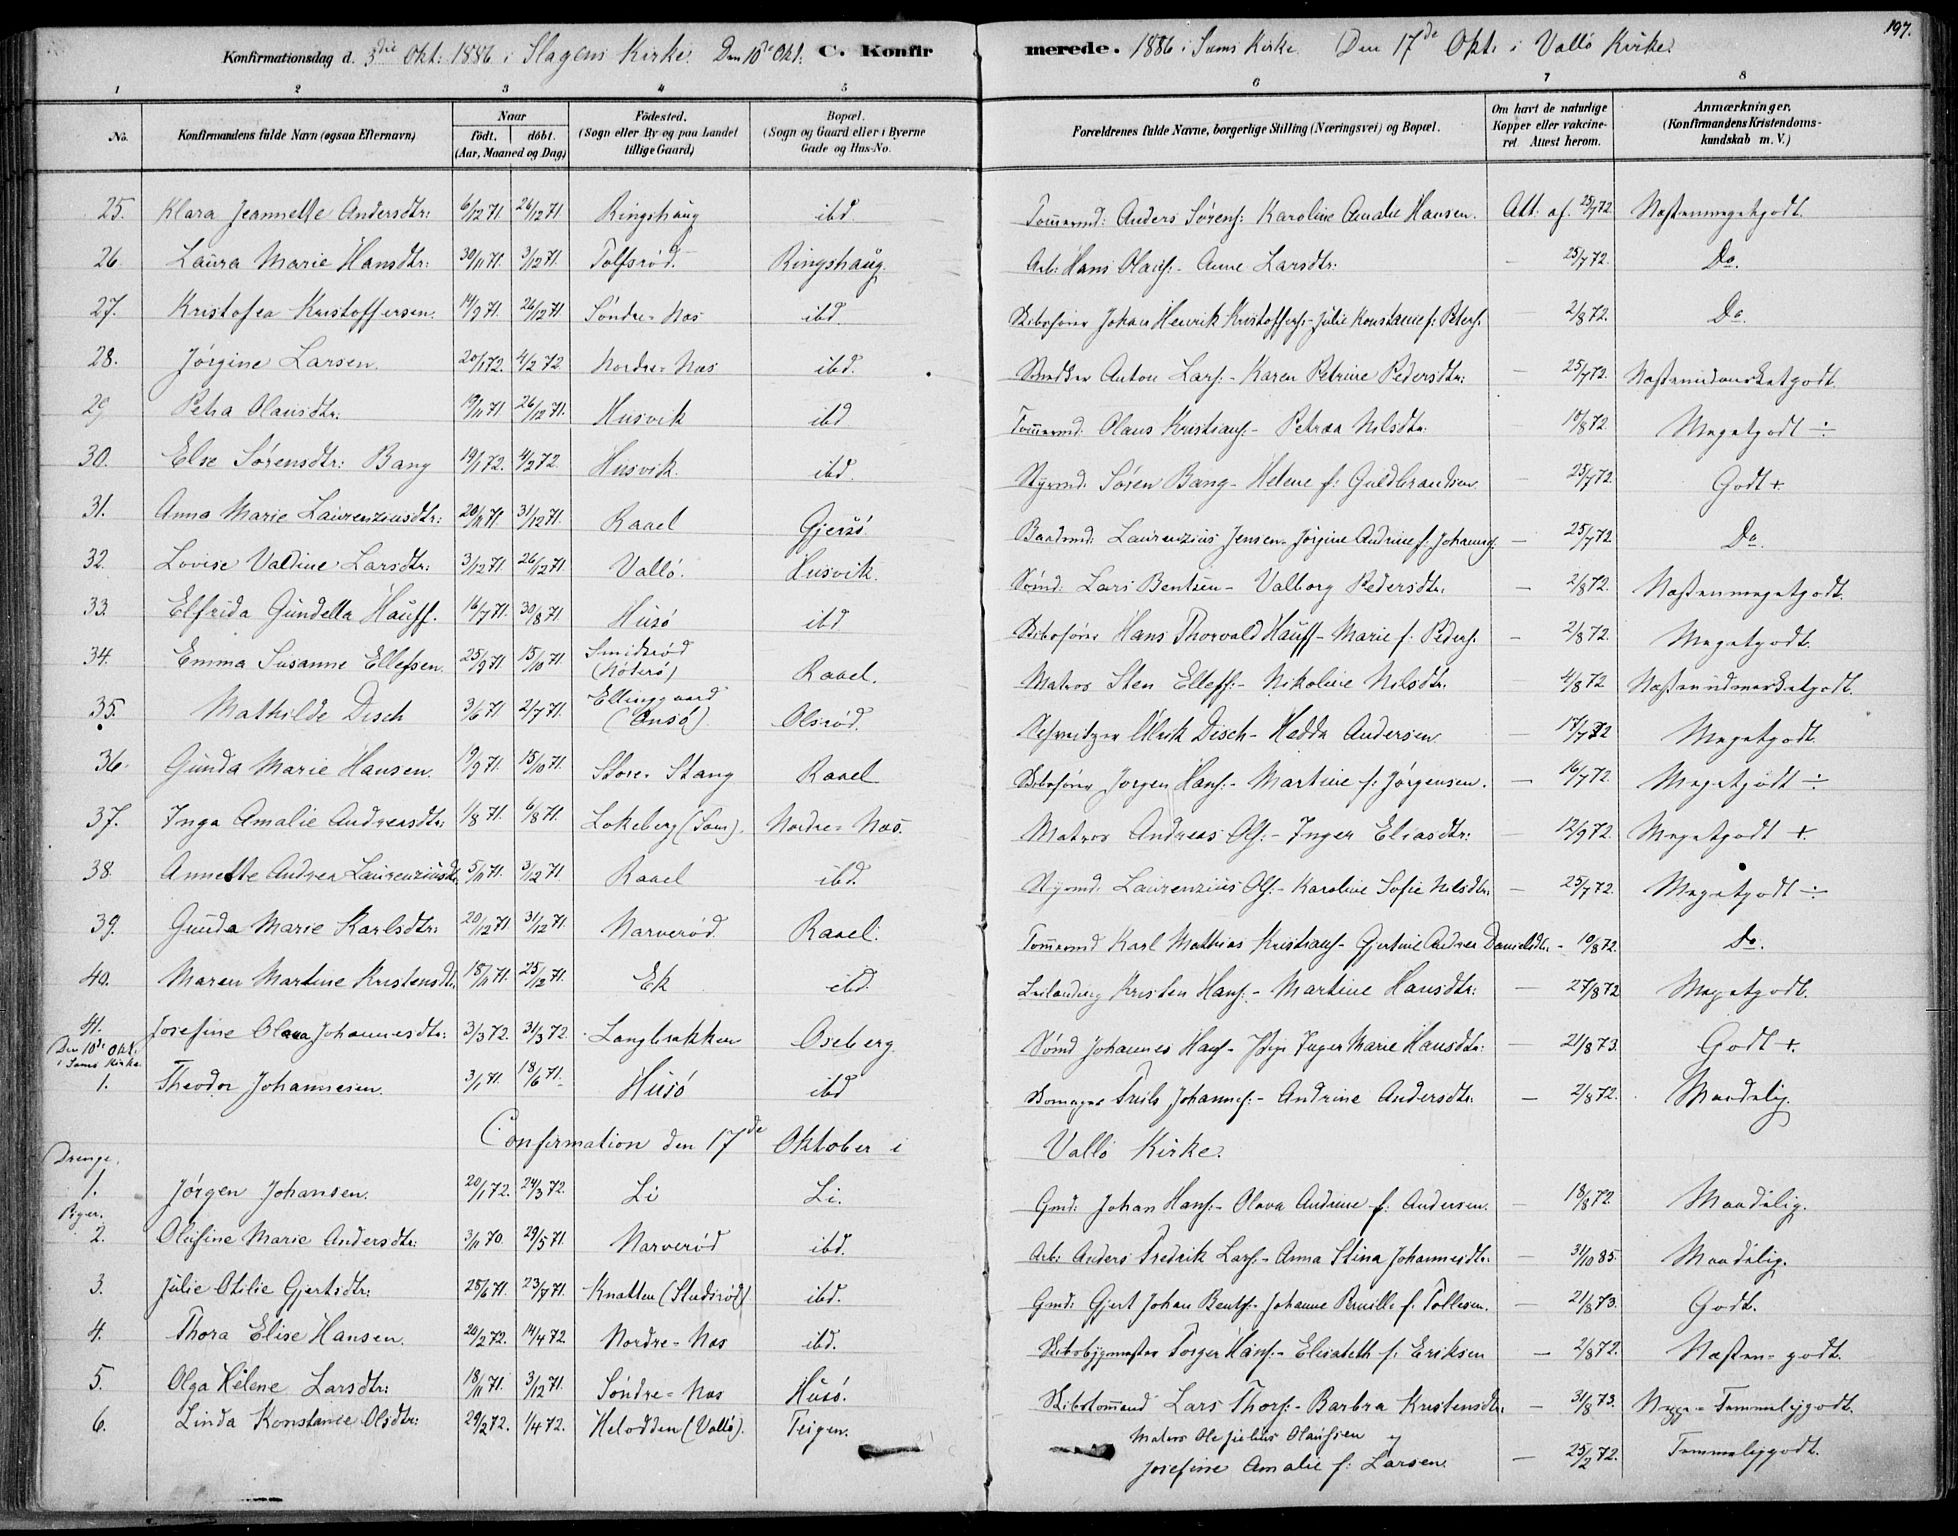 197.
Konfirmationsdag d. 3die Okt: 1886 i Slagens Kirke. Den 10de Okt. C. Konfirmerede. 1886 i Sems Kirke. Den 17de Okt: i Vallø Kirke.
1 2 3 4 5 6 7 8
No. Konfirmandens fulde Navn (ogsaa Efternavn) Naar født. døbt. (Aar, Maaned og Dag) Fødested. (Sogn eller By og paa Landet tillige Gaard) Bopæl. (Sogn og Gaard eller i Byerne Gade og Hus-No. Forældrenes fulde Navne, borgerlige Stilling (Næringsvei) og Bopæl. Om havt de naturlige Kopper eller vakcineret Attest herom. Anmærkninger. (Konfirmandens Kristendomskundskab m. V.)
25. Klara Jeannette Andersdtr: 6/12 71. 26/12 71. Ringshaug ibd. Tømmermd: Anders Sørens: Karoline Amalie Hansen. Att. af. 25/7 72. Næstenmegetgodt.
26. Laura Marie Hansdtr: 30/11 71. 3/12 71. Tolfsrød. Ringshaug. Arb: Hans Olaus: - Anne Larsdtr: — 25/7 72. Do.
27. Kristofea Kristoffersen. 14/9 71. 26/12 71. Søndre-Nes ibd. Skibsfører Johan Henrik Kristoffers: - Julie Konstance f: Peters. — 2/8 72. Do
28. Jørgine Larsen. 20/1 72. 4/2 72 Nordre-Nes ibd. Anton Lars: - Karen Petrine Pedersdtr: — 25/7 72. Næstenudmærketgodt.
29. Petra Olausdtr: 19/11 71. 26/12 71. Husvik ibd Tømmermd: Olaus Kristians: - Petrea Nilsdtr: 10/8 72 Megetgodt ÷
30. Else Sørensdtr: Bang 19/1 72. 4/2 72. Husvik. ibd. Styrmd: Søren Bang - Helene f: Guldbrandsen — 25/7 72. Godt +.
31. Anna Marie Laurenziusdtr: 20/11 71. 31/12 71. Raael Gjersø. Baadsmd: Laurenzius Jensen - Jørgine Andrine f: Johannes: — 25/7 72. Do.
32. Lovise Valdine Larsdtr: 3/12 71. 26/12 71. Vallø. Husvik. Sømd: Lars Bentsen - Valborg Pedersdtr. — 2/8 72. Næstenmegetgodt.
33. Elfrida Gundella Hauff. 16/7 71. 30/8 71. Husø ibd Skibsfører Hans Thorvald Hauff - Marie f: Peders: — 2/8 72. Megetgodt.
34. Emma Susanne Ellefsen. 25/9 71. 15/10 71. Smidsrød (Nøterø) Raael. Matros Sten Ellefs: - Nikoline Nilsdtr. 4/8 72 Næstenudmærketgodt.
35. Mathilde Disch 3/6 71 2/7 71. Ellinggaard (Onsø) Olsrød. Ulrik Disch - Hedda Andersen — 17/7 72 Megetgodt.
36. Gunda Marie Hansen. 9/9 71. 15/10 71. Store-Stang Raael Skibsfører Jørgen Hans: - Martine f: Jørgensen. — 16/7 72. Megetgodt ÷
37. Inga Amalie Andreasdtr: 1/8 71. 6/8 71. Lokeberg (Sem). Nordre-Nes. Matros Andreas Ols: - Inger Eliasdtr: — 12/9 72. Megetgodt +.
38. Annette Andrea Laurenziusdtr. 5/11 71. 3/12 71 Raael ibd. Styrmd: Laurenzius Ols: - Karoline Sofie Nilsdtr: — 25/7 72. Megetgodt ÷
39. Gunda Marie Karlsdtr: 20/12 71. 31/12 71. Narverød. Raael. Tømmermd Karl Mathias Kristians - Gjertine Andrea Danielsdtr. - 10/8 72. Do.
40. Maren Martine Kristensdtr. 18/11 71. 25/12 71. Ek ibd. Leilænding Kristen Hans: - Martine Hansdtr: — 27/8 72 Megetgodt.
41. Josefine Olava Johannesdtr: 3/3 72. 31/3 72. Langbrækken Oseberg. Sømd Johannes Hans - Inger Marie Hansdtr: — 21/8 73. Godt +.
Den 10de Okt. i Sems Kirke
1. Theodor Johannesen. 3/1 71. 18/6 71. Husø ibd Troils Johannes: - Andrine Andersdtr: — 2/8 72. Maadelig.
Confirmation den 17de Oktober i Vallø Kirke.
Drenge.
1. Jørgen Johansen. 20/1 72. 24/3 72. Li Li. Gmd: Johan Hans: - Olava Andrine f: Andersen. — 18/8 72. Maadelig.
Piger.
2. Olufine Marie Andersdtr: 3/11 70. 29/5 71. Narverød ibd. Arb: Anders Fredrik Lars: - Anna Stina Johannesdtr: — 31/10 85. Maadelig.
3. Julie Otilie Gjertsdtr: 25/6 71. 23/7 71. Knatten (Sludsrød) ibd. Gmd: Gjert Johan Bents: - Johanne f: Tollesen. — 21/8 73. Godt.
4. Thora Elise Hansen. 20/2 72. 14/4 72. Nordre-Nes ibd. Skibsbygmester Torger Hans: - Elisabeth f: Eriksen — 2/8 72. Næsten-godt.
5. Olga Helene Larsdtr: 18/11 71. 3/12 71. Søndre-Nes Husø. Skibstømmd Lars Thors: - Barbra Kristensdtr. — 31/8 73. Temmeliggodt.
6. Linda Konstance Olsdtr: 29/2 72. 1/4 72. Helodden (Vallø). Teigen. Matros Ole Julius Olaussen og
Josefine Amalie f: Larsen. — 25/2 72. Temmeliggodt.